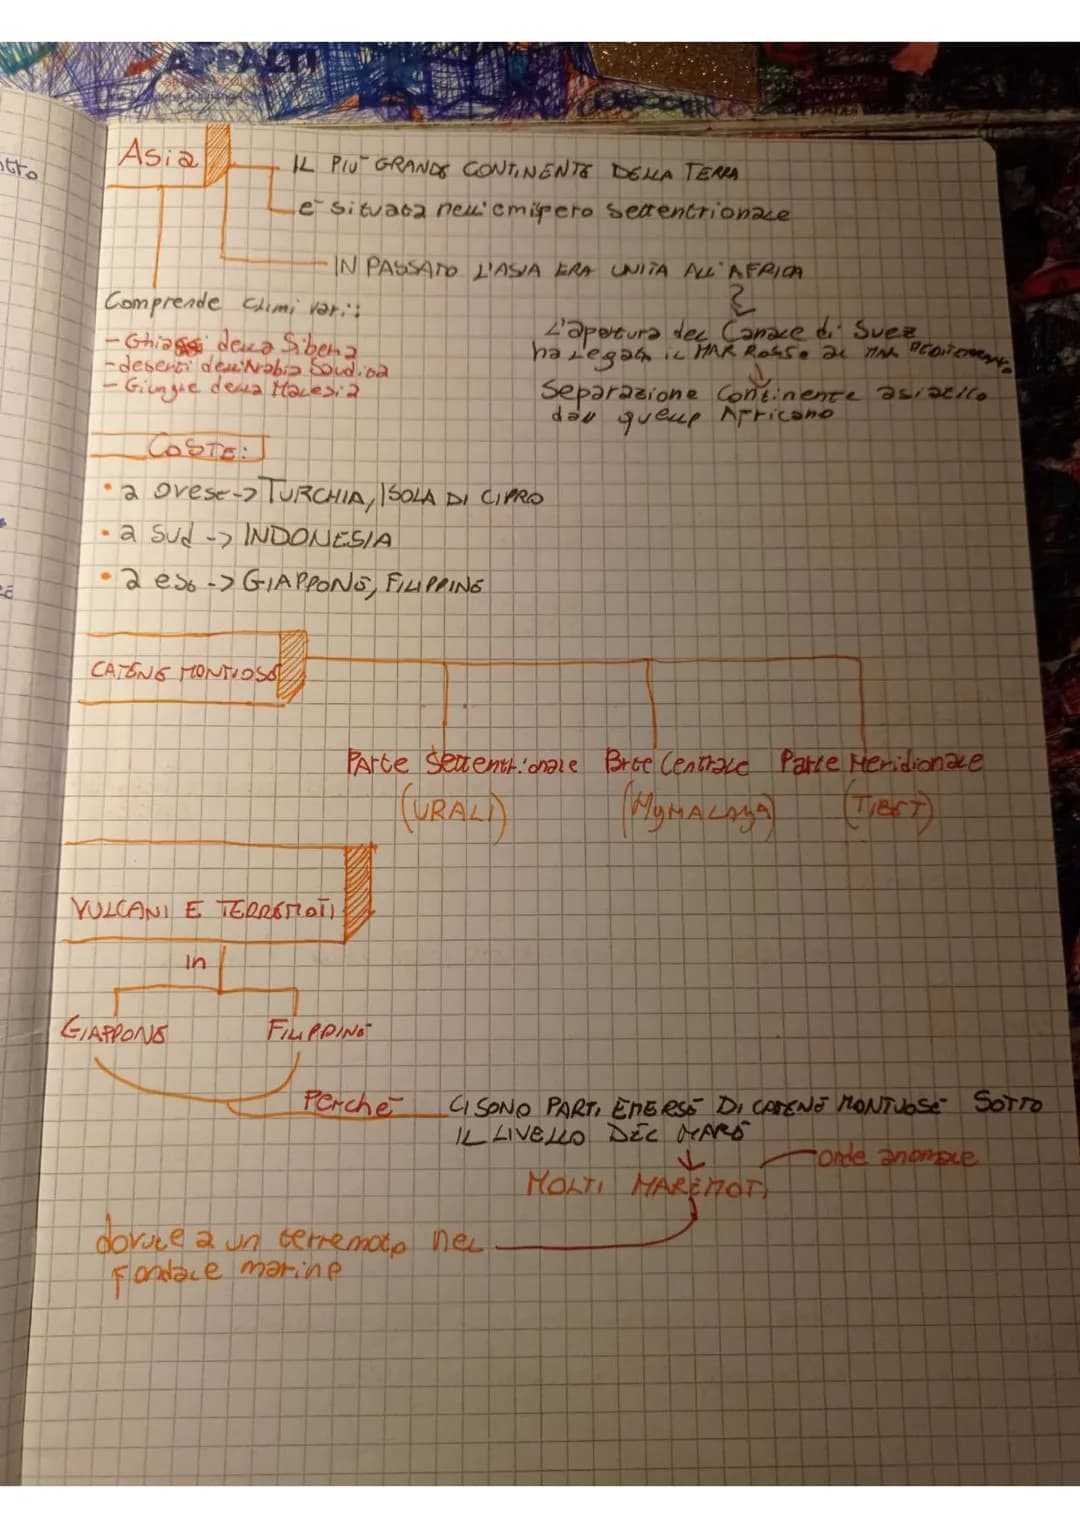 APPALTI
Asia
IL PIU GRANDE CONTINENTE DELLA TERRA
e situata nell'emispero settentrionale
IN PASSATO L'ASIA ERA UNITA ALL'AFRICA
Comprende climi vari:
- Ghiacci della Siberia
- deserti dell'Arabia Saudida
- Giungle della Malesia
L'apertura del Canale di Suez
ha legato il MAR Rosso al MAR MEDITERRANEO
Separazione Continente asiatico
dall quello Africano
COSTE:
• a ovest -> TURCHIA, ISOLA DI CIPRO
• a sud -> INDONESIA
• a est -> GIAPPONE, FILIPPINE
CATENE MONTUOSE
PArte Settentrionale Parte Centrale Parte Meridionale
(URALI) (HyMALAya) (TIBET)
VULCANI E TERREMOTI
in
GIAPPONE FILIPPINE
Perchè CI SONO PARTI EMERSE DI CATENE MONTUOSE SOTTO
IL LIVELLO DEL MARE
MOLTI MAREMOTI onde anomale
dovute a un terremoto nel
fondale marino